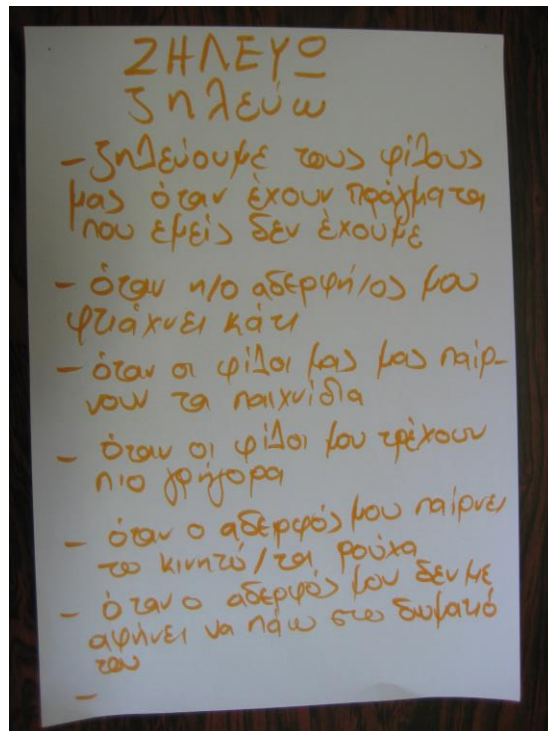 ΖΗΛΕΥΩ
ζηλεύω
- ζηλεύουμε τους φίλους
μας όταν έχουν πράγματα
που εμείς δεν έχουμε
- όταν η/ο αδερφή/ος μου
φτιάχνει κάτι
- όταν οι φίλοι μας μας παίρ-
νουν τα παιχνίδια
- όταν οι φίλοι μου τρέχουν
πιο γρήγορα
- όταν ο αδερφός μου παίρνει
το κινητό/τα ρούχα
- όταν ο αδερφός μου δεν με
αφήνει να πάω στο δωμάτιό
του
-